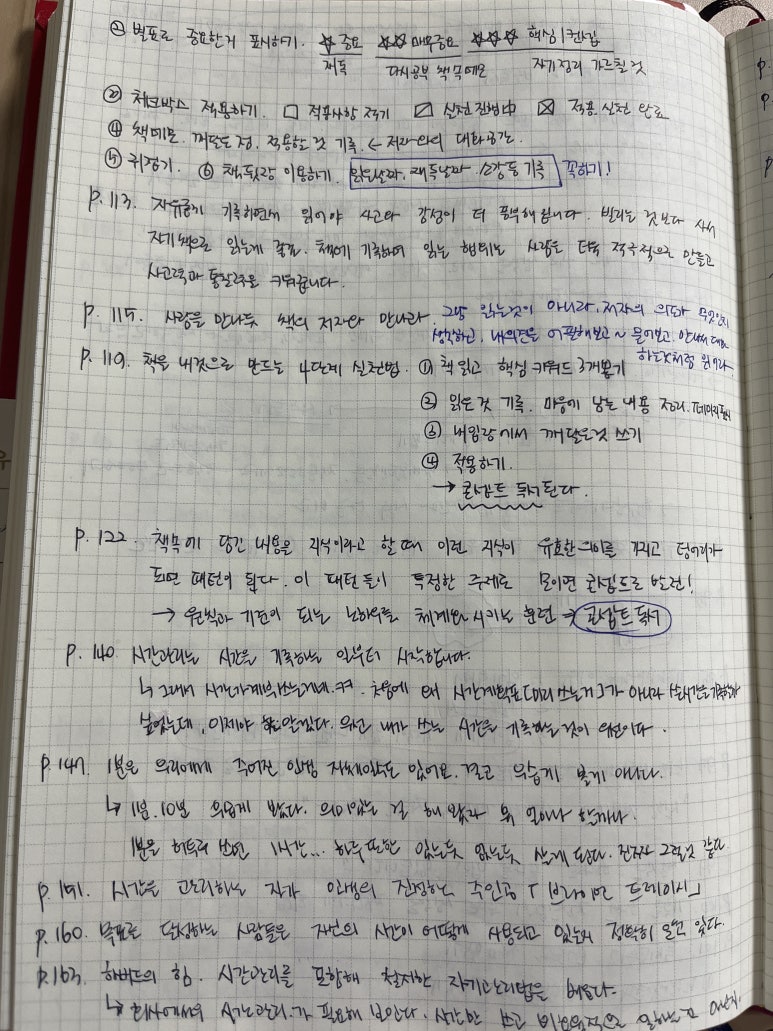 ② 별표로 중요한거 표시하기. ☆ 중요 ☆☆ 매우중요 ☆☆☆ 핵심/컨셉
재독 다시공부 책 목메모 자기정리 가르칠 것
③ 체크박스 적용하기. □ 적용사항 적기 ☑ 실천 진행中 ☒ 적용. 실천 완료
④ 책메모. 깨달은 점. 적용할 것 기록. ← 저자와의 대화공간.
⑤ 귀접기. ⑥ 책뒷장 이용하기. 읽은날짜, 재독날짜 소감등 기록 꼭하기!
p. 113. 자유롭게 기록하면서 읽어야 사고와 감성이 더 풍부해집니다. 빌리는 것보다 사서
자기책으로 읽는게 좋음. 책에 기록하며 읽는 행위는 사람을 더욱 적극적으로 만들고
사고력과 통찰력을 키워줍니다.
p. 115. 사람을 만나듯 책의 저자와 만나라 그냥 읽는것이 아니라. 저자의 의도 무엇인지
생각하고, 내의견은 어떤지 해보고~ 물어보고. 만나서 대화
하는것처럼 읽어라.
p. 119. 책을 내것으로 만드는 4단계 실천법. ① 책 읽고 핵심 키워드 3개뽑기
② 읽은 것 기록. 마음에 남는 내용 정리. 페이지표시
③ 내입장에서 깨달은것 쓰기
④ 적용하기.
→ 콘셉트 독서된다.
p. 122. 책속에 담긴 내용을 지식이라고 할 때 이런 지식이 유효한 의미를 가지고 덩어리가
되면 패턴이 됩니다. 이 패턴들이 특정한 주제로 모이면 콘셉트로 발전!
→ 원칙과 기준이 되는 노하우를 체계화 시키는 훈련 ⇒ 콘셉트 독서
p. 140. 시간관리는 시간을 기록하는 일부터 시작합니다.
↳ 그래서 시간가계부쓰는거네. ㅋㅋ. 처음에 왜 시간계획표[미리 쓰는거]가 아니라 쓴시간을 기록할까
싶었는데, 이제야 알겠다. 우선 내가 쓰는 시간을 기록하는것이 우선이다.
p. 147. 1분은 우리에게 주어진 인생 자체일수도 있어요. 결코 우습게 볼게 아니다.
↳ 1분. 10분 우습게 봤다. 의미있는 걸 해 봤자 뭐 얼마나 할까나.
1분을 허투루 쓰면 1시간... 하루 또한 있는듯 없는듯 살게 된다. 진짜 그럴것 같다
p. 151. 시간을 관리하는 자가 인생의 진정한 주인공 「브라이언 트레이시」
p. 160. 목표를 달성하는 사람들은 자신의 시간이 어떻게 사용되고 있는지 정확히 알고 있다.
p. 163. 하버드의 힘. 시간관리를 포함해 철저한 자기관리법을 배운다.
↳ 회사에서의 시간관리.가 필요해 보인다. 시간만 쓰고 비효율적으로 일하는건 아닌지.